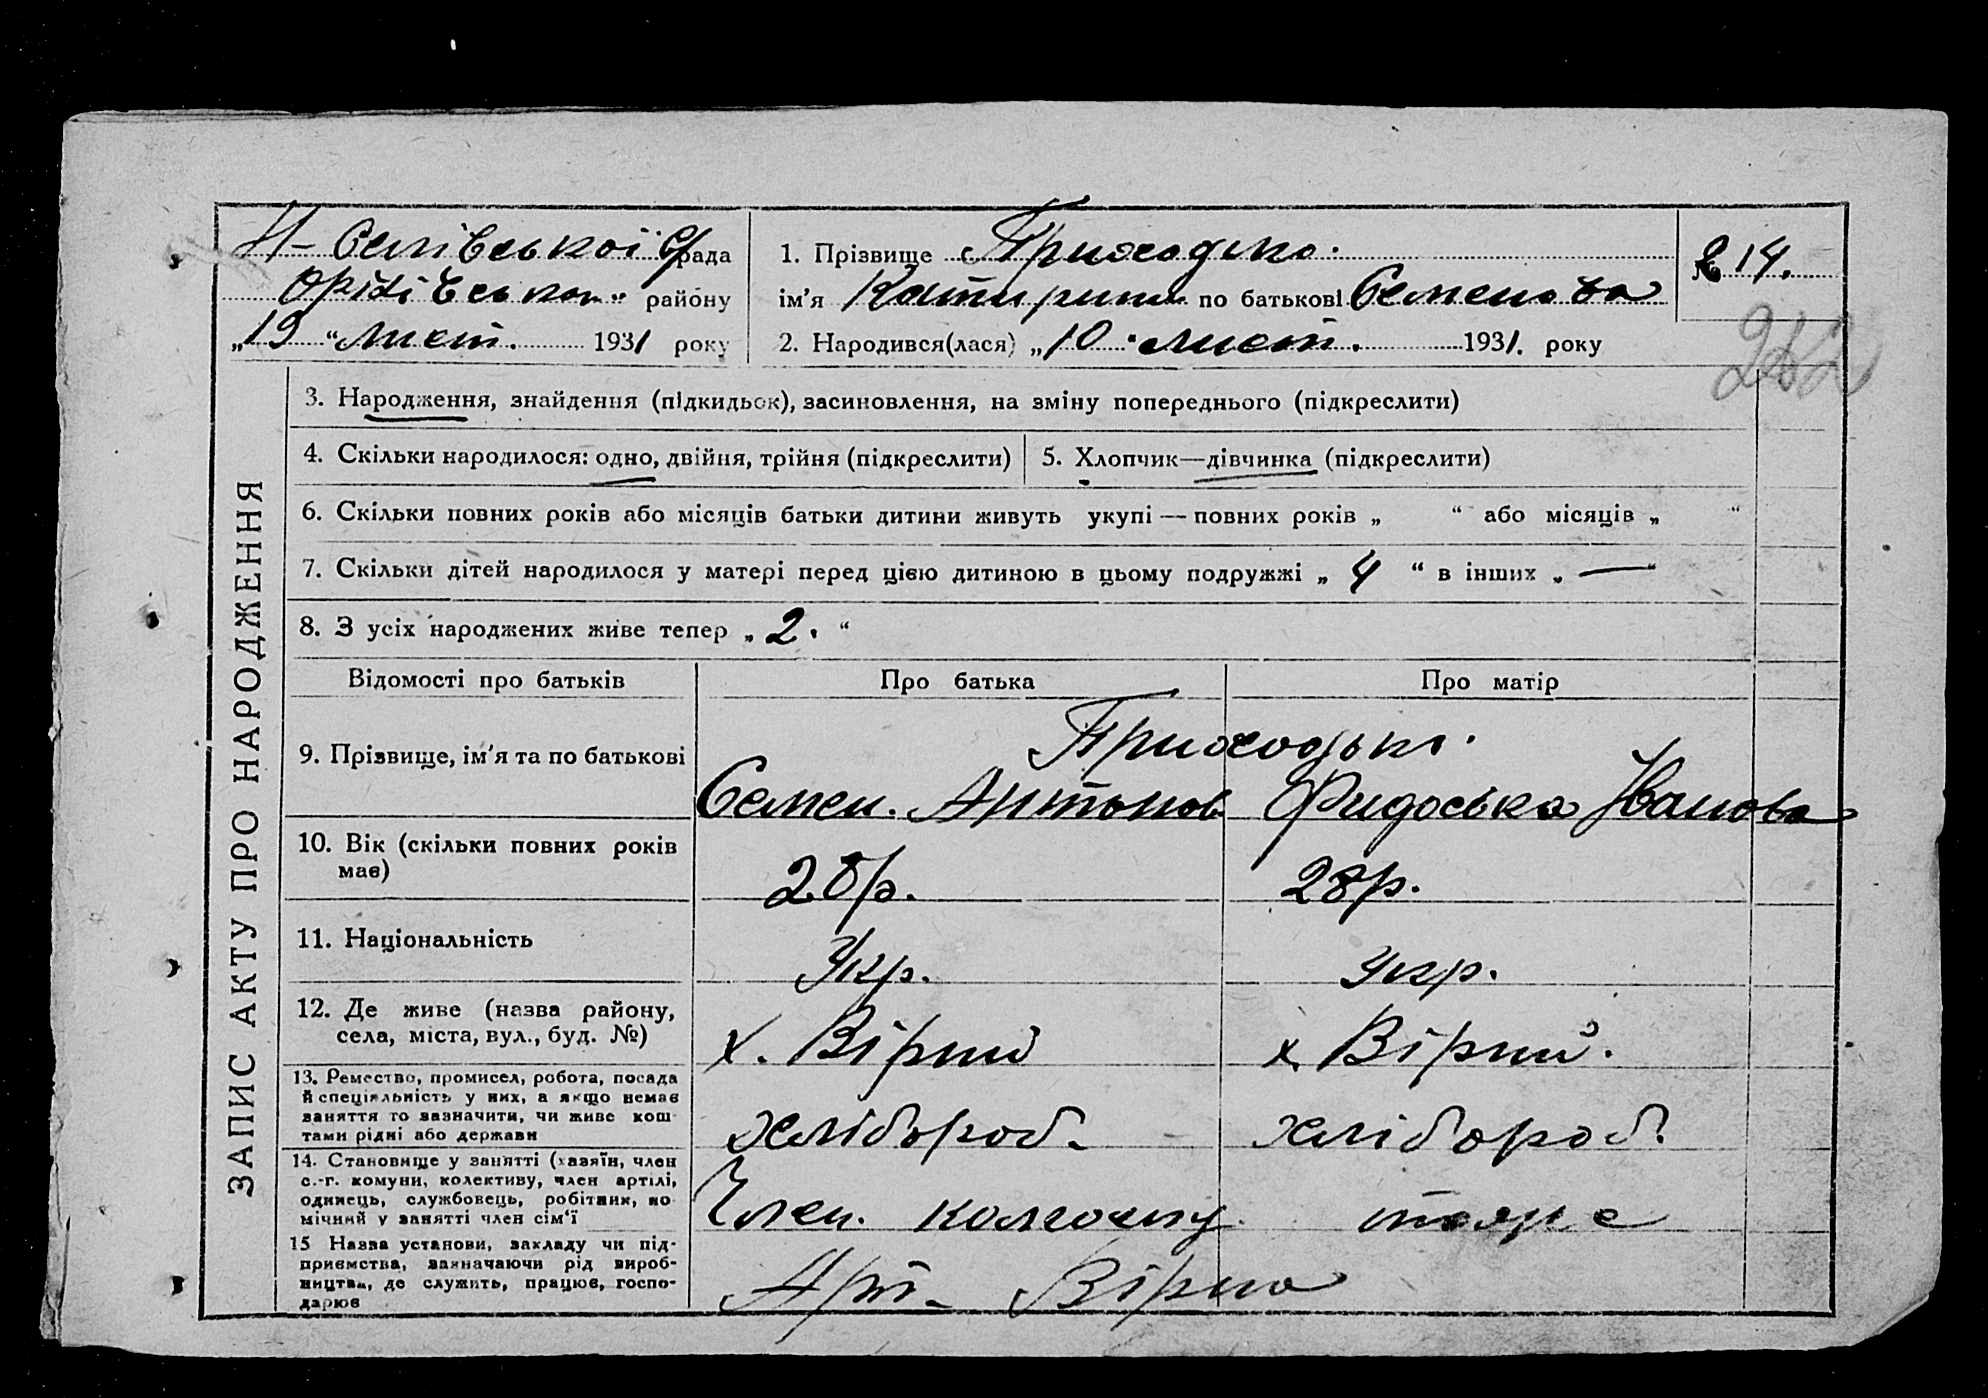 Н-Селівської С/рада
Оріхівськ. району
„19“ лист. 1931 року
1. Прізвище Приходько.
ім'я Катирина по батькові Семенова
2. Народився(лася) „10“ лист. 1931. року
№ 14.
ЗАПИС АКТУ ПРО НАРОДЖЕННЯ
3. Народження, знайдення (підкидьок), засиновлення, на зміну попереднього (підкреслити)
4. Скільки народилося: одно, двійня, трійня (підкреслити)
5. Хлопчик—дівчинка (підкреслити)
6. Скільки повних років або місяців батьки дитини живуть укупі — повних років „ “ або місяців „ “
7. Скільки дітей народилося у матері перед цією дитиною в цьому подружжі „ 4 “ в інших „ — “
8. З усіх народжених живе тепер „ 2. “
Відомості про батьків
Про батька
Про матір
9. Прізвище, ім'я та по батькові
Приходькі.
Семен. Антонов
Фидоська Іванова
10. Вік (скільки повних років
має)
28р.
28р.
11. Національність
Укр.
Укр.
12. Де живе (назва району,
села, міста, вул., буд. №)
х. Вірний
х. Вірний.
13. Ремество, промисел, робота, посада
й спеціяльність у них, а якщо немає
заняття то зазначити, чи живе кош-
тами рідні або держави
хлібороб.
хлібороб.
14. Становище у занятті (хазяїн, член
с.-г. комуни, колективу, член артілі,
одинець, службовець, робітник, по
мічний у занятті член сім'ї
Член. колгоспу.
тоже
15 Назва установи, закладу чи під-
приємства, зазначаючи рід вироб-
ництва, де служить, працює, госпо-
дарює
Арт. Вірна